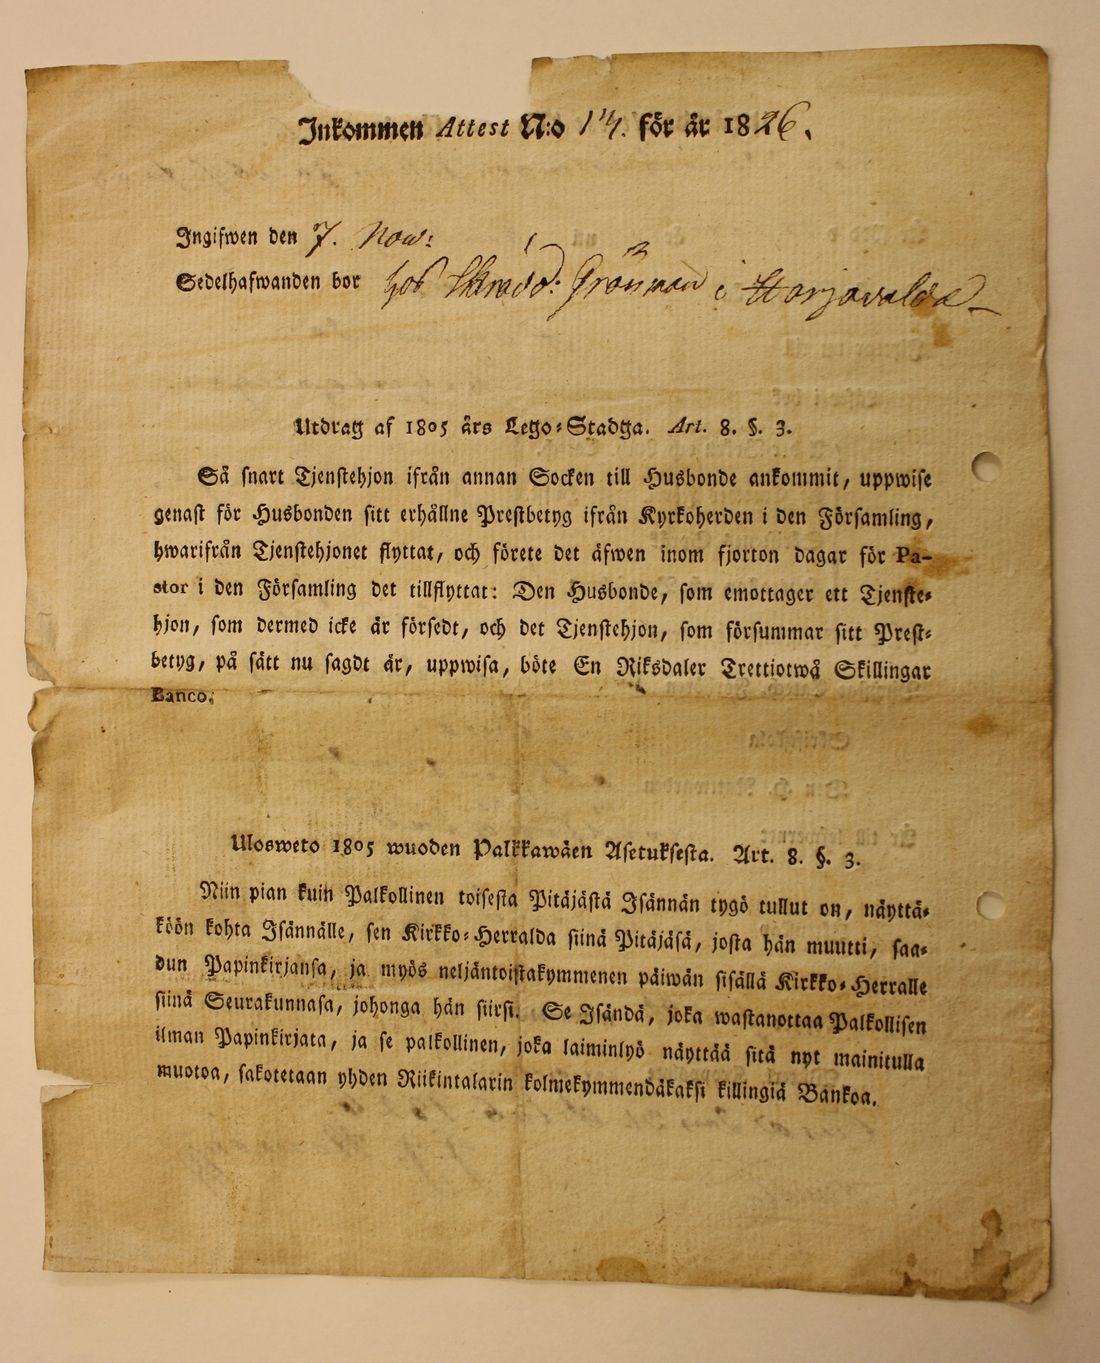 Inkommen Attest N:o 14. för år 1826.
Ingifwen den 7. Now:
Sedelhafwanden bor hos Skrädd: Grönman i Harjavalda
Utdrag af 1805 års Lego-Stadga. Art. 8. §. 3.
Så snart Tjenstehjon ifrån annan Socken till Husbonde ankommit, uppwise
genast för Husbonden sitt erhållne Prestbetyg ifrån Kyrkoherden i den Församling,
hwarifrån Tjenstehjonet flyttat, och förete det äfwen inom fjorton dagar för Pa-
stor i den Församling det tillflyttat: Den Husbonde, som emottager ett Tjenste-
hjon, som dermed icke är försedt, och det Tjenstehjon, som försummar sitt Prest-
betyg, på sätt nu sagdt är, uppwisa, böte En Riksdaler Trettiotwå Skillingar
Banco.
Ulosweto 1805 wuoden Palkkawäen Asetuksesta. Art. 8. §. 3.
Niin pian kuin Palkollinen toisesta Pitäjästä Isännän tygö tullut on, näyttä-
köön kohta Isännälle, sen Kirkko-Herralda siinä Pitäjäsä, josta hän muutti, saa-
dun Papinkirjansa, ja myös neljäntoistakymmenen päiwän sisällä Kirkko-Herralle
siinä Seurakunnasa, johonga hän siirsi. Se Isändä, joka wastanottaa Palkollisen
ilman Papinkirjata, ja se palkollinen, joka laiminlyö näyttää sitä nyt mainitulla
muotoa, sakotetaan yhden Riikintalarin kolmekymmendäkaksi killingiä Bankoa.